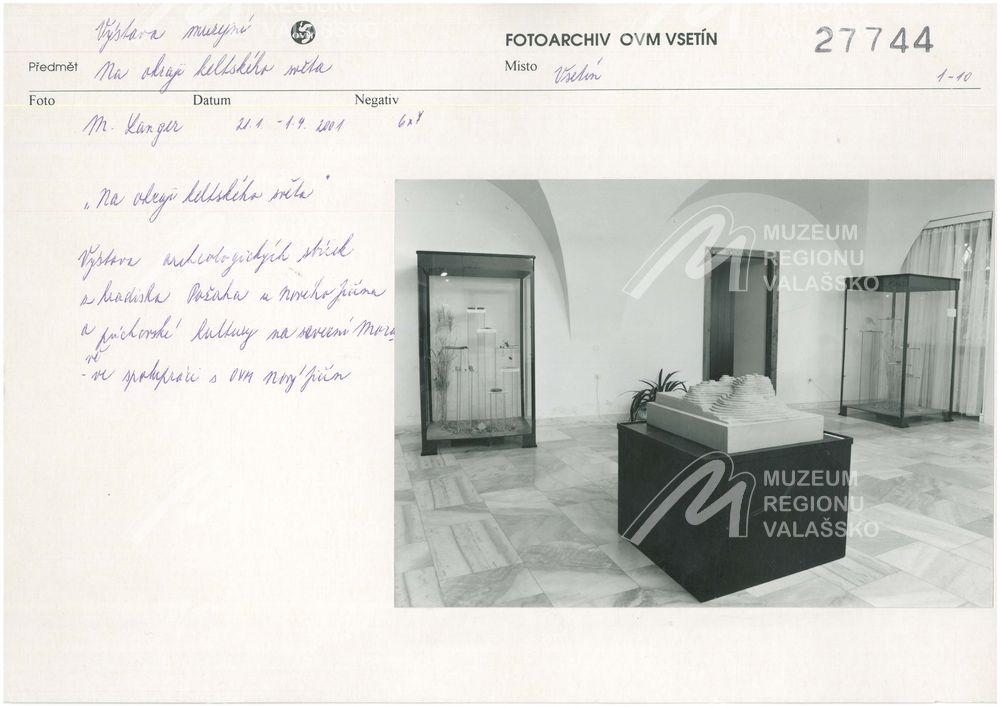 Výstava muzejní
OVM
FOTOARCHIV OVM VSETÍN
27744
Předmět
Na okraji keltského světa
Místo
Vsetín
1-10
Foto
Datum
Negativ
M. Langer
21.1. - 1.4. 2001
6x7
„Na okraji keltského světa"
Výstava archeologických sbírek
z hradiska Požaha u Nového Jičína
a púchovské kultury na severní Mora
vě
- ve spolupráci s OVM Nový Jičín
MUZEUM
REGIONU
VALAŠSKO
MUZEUM
REGIONU
VALAŠSKO